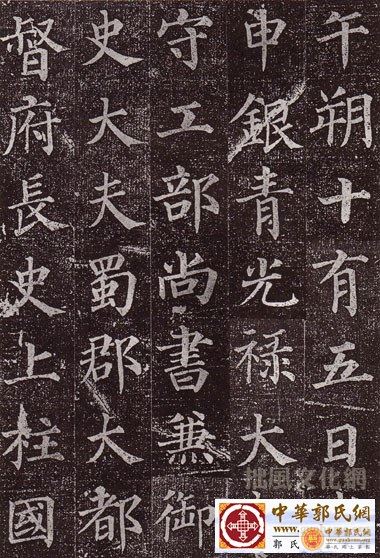 午朔十有五日
申銀青光禄大
守工部尚書兼御
史大夫蜀郡大都
督府長史上柱國
拙風文化網
中華郭氏網
www.
郭氏